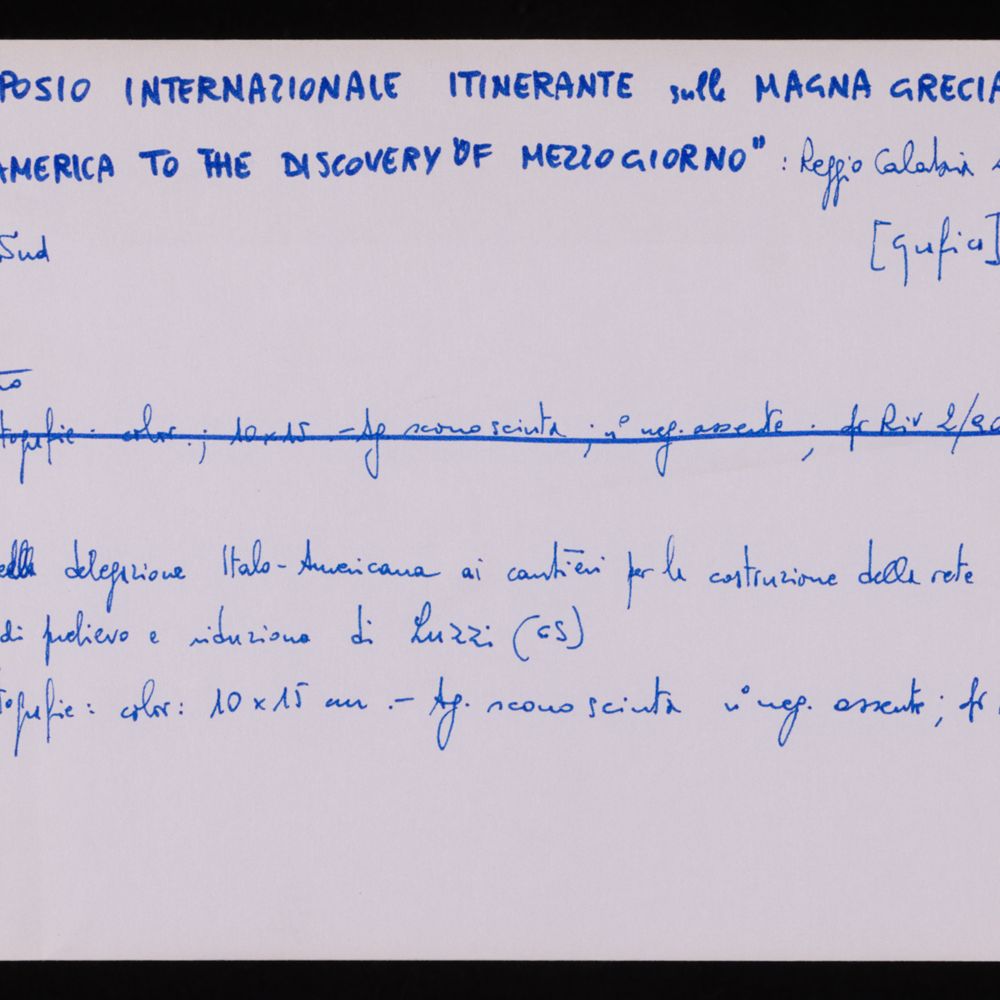 POSIO INTERNAZIONALE ITINERANTE sulla MAGNA GRECIA
AMERICA TO THE DISCOVERY "OF MEZZOGIORNO" : Reggio Calabria
Sud
[Grafica]
to
tografie: color.; 10x15 - Ag. sconosciuta; n° neg. assente; fr Riv 2/90
della delegazione Italo-Americana ai cantieri per la costruzione della rete
di prelievo e riduzione di Luzzi (CS)
tografie: color: 10x15 cm .- Ag. sconosciuta n° neg. assente; fr